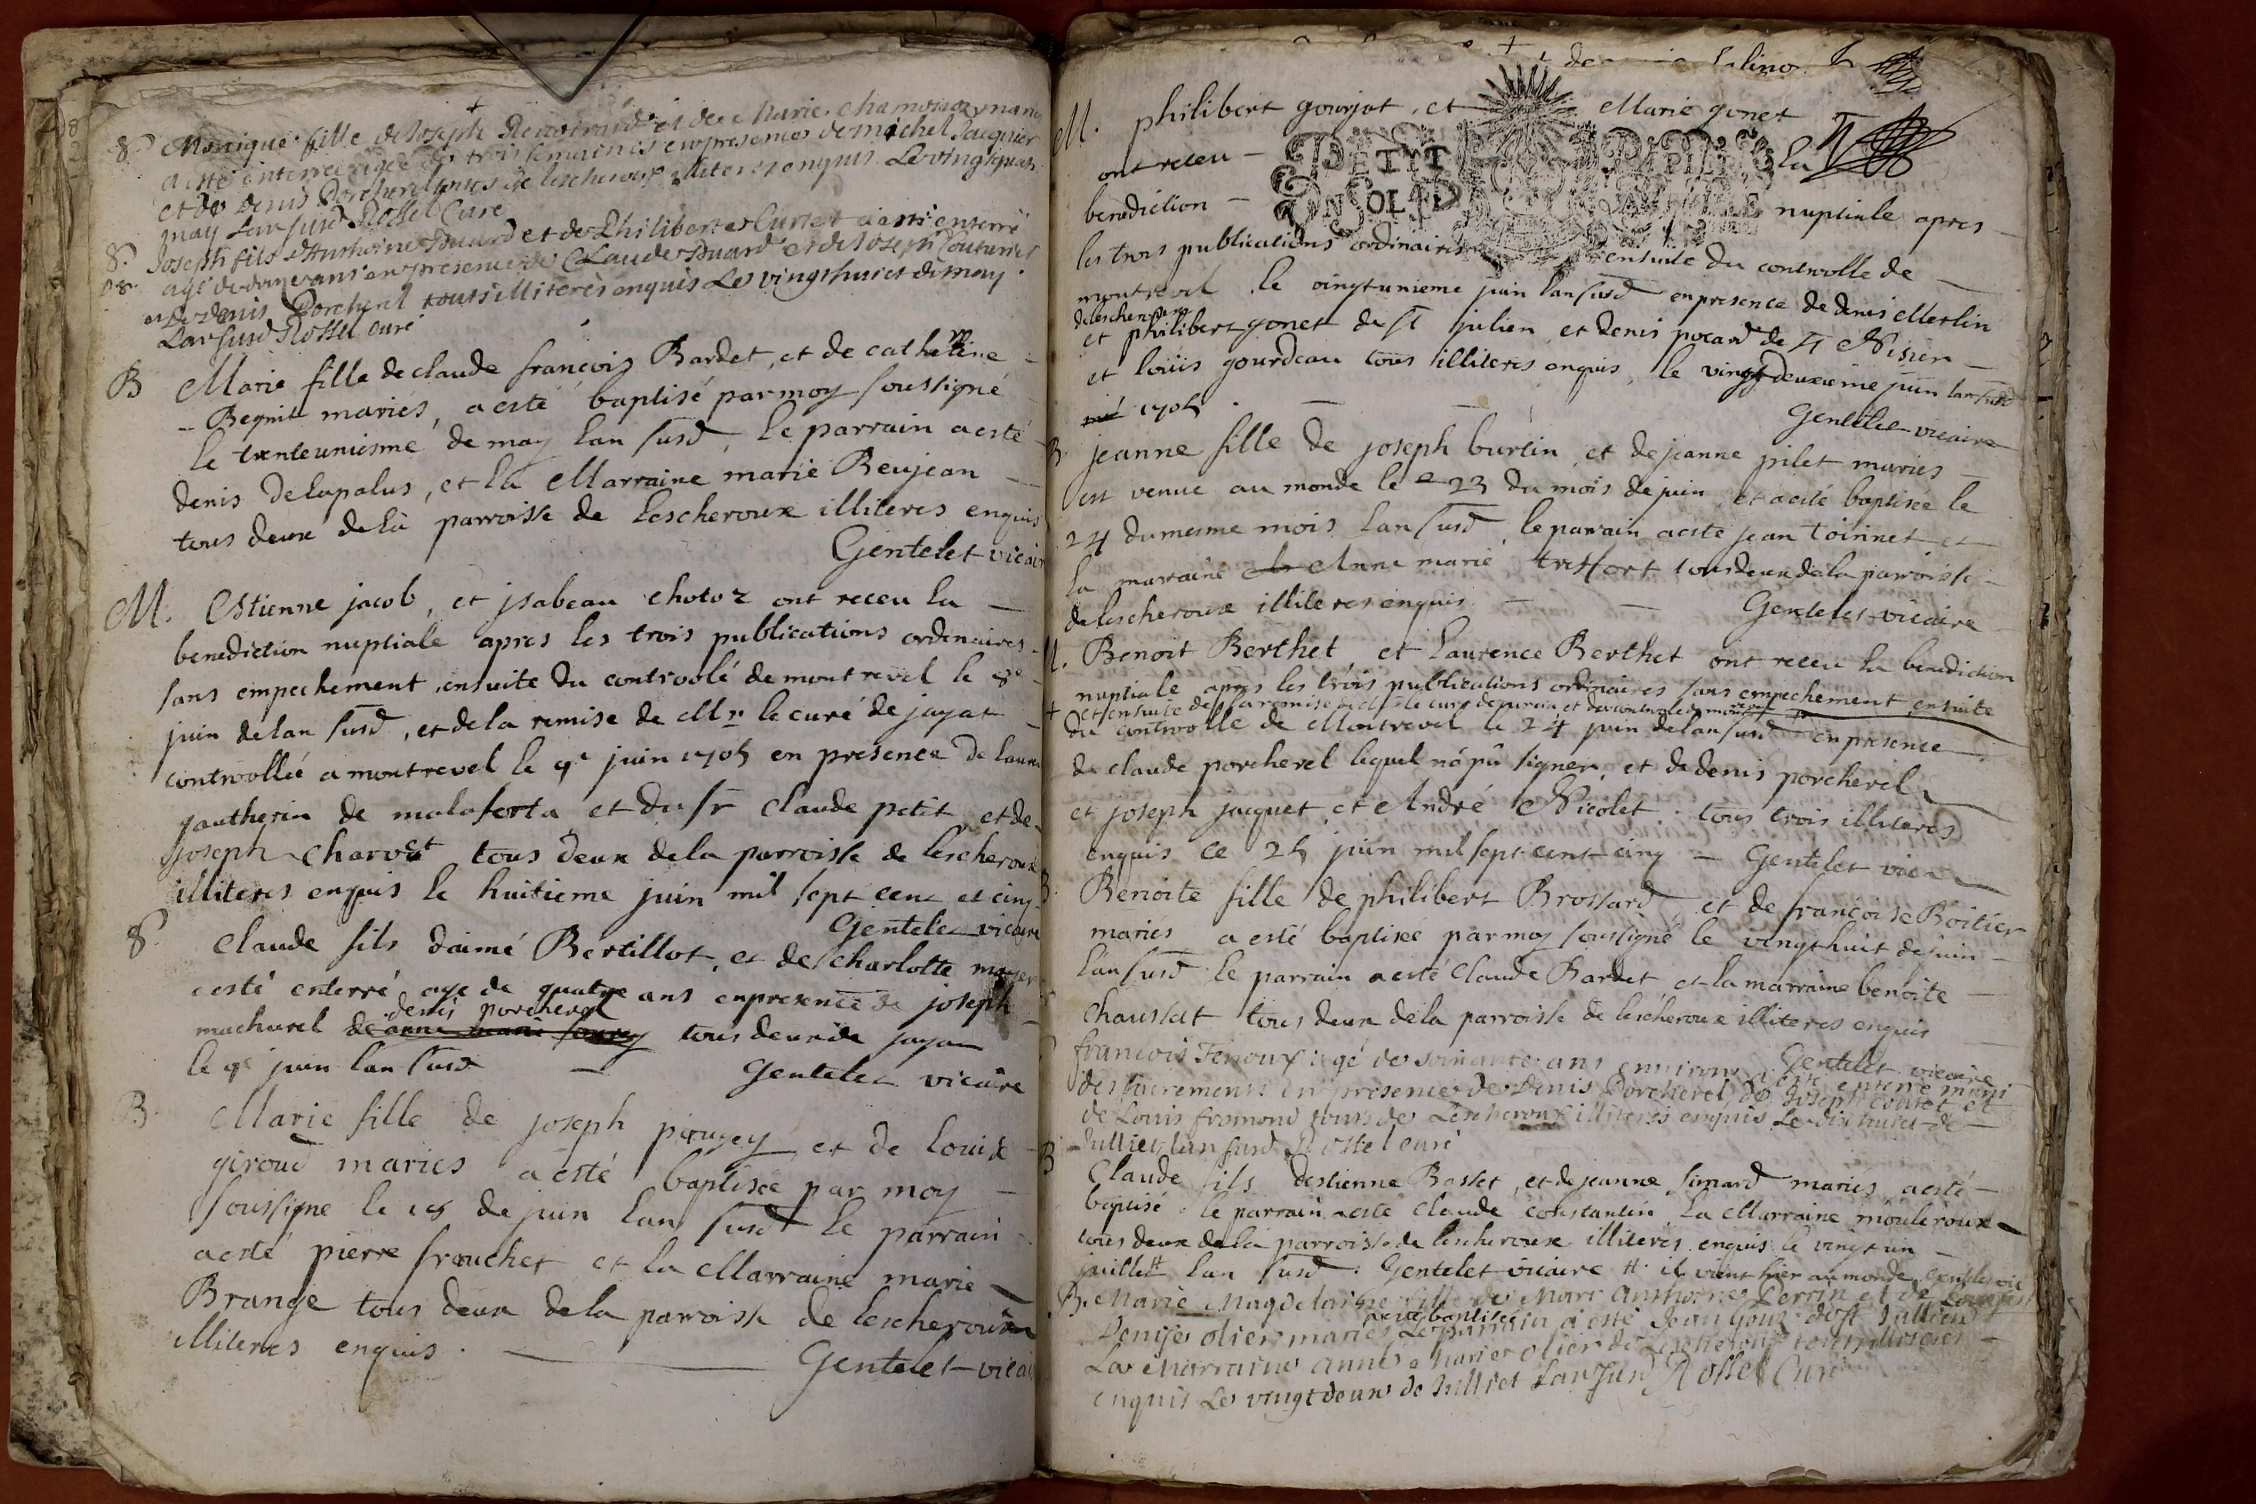 S. Monique fille de Joseph et de Marie mariés
a esté enterrée agée de trois semaines en presence de michel Jacquier
et de denis Porcherel tous de lescheroux illiteres enquis Le vingt
may Lan susd Rossel Curé
S. Joseph fils d'Anthoine Buard et de Philiberte Curtet a esté enterré
agé de ans en presence de Claude Buard et de Joseph
et de denis Porcherel touts illiteres enquis Le vingthuict de may
Lan susd Rossel curé
B Marie fille de claude françois Bardet, et de catherine
Begnit mariés, a esté baptisé par moy soussigné
le trenteuniesme de may lan susd le parrain a esté
denis Delapalus, et la Marraine marie Beujean
tous deux de la parroisse de lescheroux illiteres enquis
Gentelet vicair
M. Estienne jacob, et jsabeau chotoz ont receu la
benediction nuptiale apres les trois publications ordinaires
sans empechement, ensuite du controolé de montrevel le 8e
juin de lan susd, et de la remise de Mr le curé de jayat
controollée a montrevel le 9e juin 1705 en presence de
gautherin de malaferta et du sr claude petit et de
joseph charvet tous deux de la parroisse de lescheroux
illiteres enquis le huitieme juin mil sept cent et cinq
Gentelet vicaire
S. claude fils daimé Bertillot, et de charlotte
esté enterré age de quatre ans en presence de joseph
denis porcherel
machurel de tous deux de jayat
le 9e juin lan susd Gentelet vicaire
B. Marie fille de joseph pirugey et de louise
giroud mariés a esté baptisée par moy
soussigne le 18 de juin lan susd le parrain
a esté pierre frouchet et la Marraine marie
Brange tous deux de la parroisse de lescheroux
illiteres enquis. Gentelet vicai
M. philibert gourjat, et Marie gonet
ont receu la
PETIT PAPIER
UN SOL
benediction nuptiale apres
les trois publications ordinaires ensuite du controolle de
montrevel le vingtunieme juin lan susd en presence de denis Merlin
de lescheroux
et philibert gonet de st julien et denis pocard de st Nisier
et loüis gourdeau tous illiteres enquis, le vingtdeuxieme juin lan susd
1705. Gentelet vicaire
B. jeanne fille de joseph burtin, et de jeanne pilet mariés
est venue au monde le 23 du mois de juin, et a esté baptisée le
24 du mesme mois lan susd, le parrain a esté jean toinnet et
la marraine Anne marie treffort tous deux de la parroisse
de lescheroux illiteres enquis Gentelet vicaire
M. Benoit Berthet et laurence Berthet ont receu la benediction
nuptiale apres les trois publications ordinaires sans empechement ensuite
+ et ensuite de la remise de le curé de et du controolle de montrevel
du controolle de Montrevel le 24 juin de lan susd en presence
de claude porcherel lequel n'a pû signer, et de denis porcherel
et joseph jacquet, et André Nicolet. tous trois illiteres
enquis ce 25 juin mil sept cent cinq Gentelet vica
B. Benoite fille de philibert Brossard, et de françoise Boitier
mariés a esté baptisée par moy soussigné le vingthuit de juin
lan susd le parrain a esté claude Bardet et la marraine benoite
chaussat tous deux de la parroisse de lescheroux illiteres enquis
Gentelet vicaire
françois Fenoux agé de soixante ans environ a esté enterré muni
des sacrements en presence de Denis Porcherel, de Joseph et
de Louis fromond tous de Lescheroux illiteres enquis Le dixhuict de
Julliet lan susd Rossel curé
B Claude fils destienne Basset, et de jeanne simard mariés a esté
baptisé. le parrain a esté claude constantin la Marraine
tous deux de la parroisse de lescheroux illiteres enquis le vingt un
juillet lan susd. Gentelet vicaire #. il vient hier au monde gentelet vic
B. Marie Magdelaine fille de Marc Anthoine Perrin et de
a esté baptisée
Denise olier mariés Le parrain a esté Jean de st Jullien
La Marraine anne Marie olier de Lescheroux touts illiteres
enquis Le vingt deux de Julliet Lan susd Rossel Curé